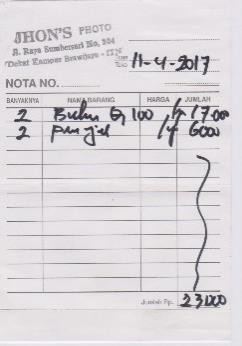 JHON'S PHOTO
Jl. Raya Sumbersari No. 304
Dekat Kampus Brawijaya - ITN
11-4-2017
NOTA NO.
BANYAKNYA NAMA BARANG HARGA JUMLAH
2 G 100 17.000
2 6000
Jumlah Rp. 23.000